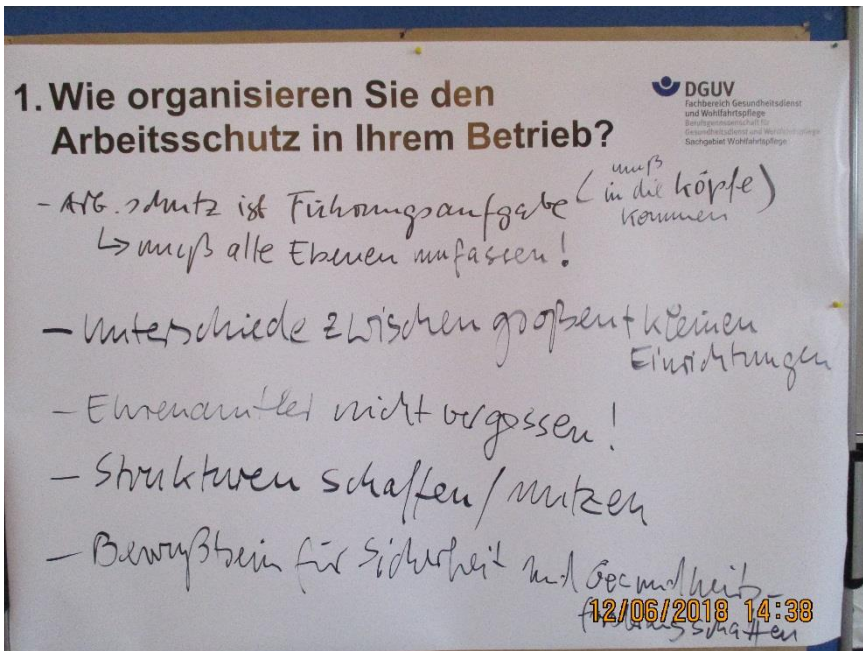 1. Wie organisieren Sie den
Arbeitsschutz in Ihrem Betrieb?
DGUV
Fachbereich Gesundheitsdienst
und Wohlfahrtspflege
Berufsgenossenschaft für
Gesundheitsdienst und Wohlfahrtspflege
Sachgebiet Wohlfahrtspflege
- Arb.schutz ist Führungsaufgabe (muß in die Köpfe kommen)
↳ muß alle Ebenen umfassen!
- Unterschiede zwischen großen + kleinen
Einrichtungen
- Ehrenamtler nicht vergessen!
- Strukturen schaffen / nutzen
- Bewußtsein für Sicherheit und Gesundheits-
schaffen
12/06/2018 14:38